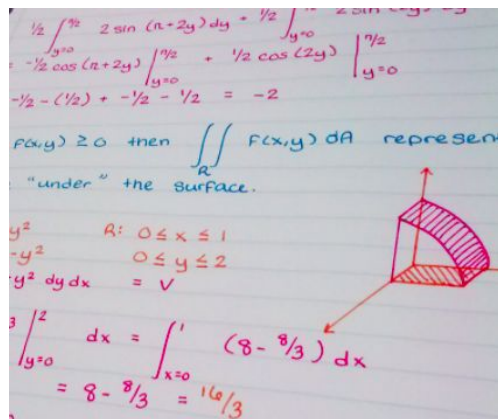 ½ ∫_{y=0}^{π/2} 2 sin (π+2y) dy + ½ ∫_{y=0} 2 sin (2y)
= -½ cos (π+2y) |_{y=0}^{π/2} + ½ cos (2y) |_{y=0}^{π/2}
-½ - (½) + -½ - ½ = -2
F(x,y) ≥ 0 then ∬_R F(x,y) dA represen
"under" the surface.
y² R: 0 ≤ x ≤ 1
-y² 0 ≤ y ≤ 2
-y² dy dx = V
3 |_{y=0}^{2} dx = ∫_{x=0}^{1} (8 - 8/3) dx
= 8 - 8/3 = 16/3